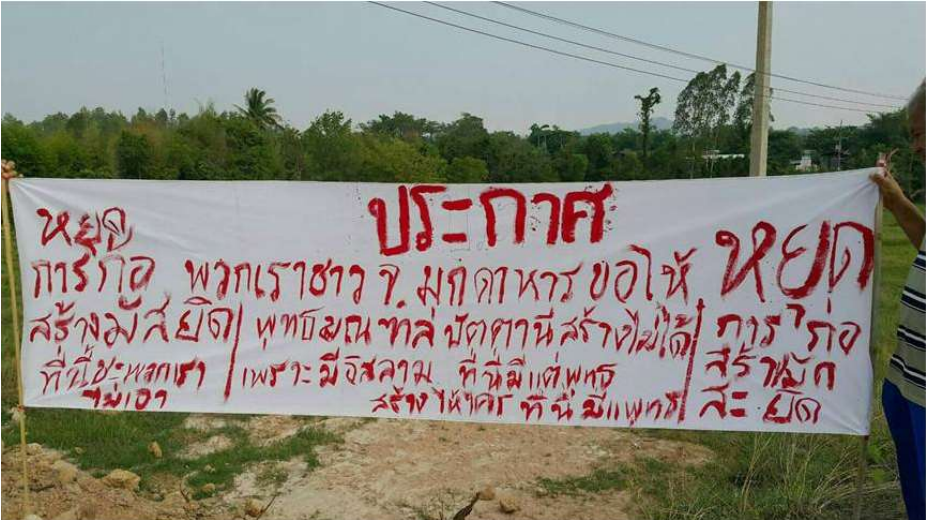 ประกาศ
หยุด
การก่อ
สร้างมัสยิด
ที่นี่ชะพวกเรา
ไม่เอา
พวกเราชาว จ.มุกดาหาร ขอให้
พุทธมณฑล ปัตตานี สร้างไม่ได้
เพราะมีอิสลาม ที่นี่มีแต่พุทธ
สร้างให้ใคร ที่นี่มีแพุทธ
หยุด
การก่อ
สร้างมัก
สะยิด